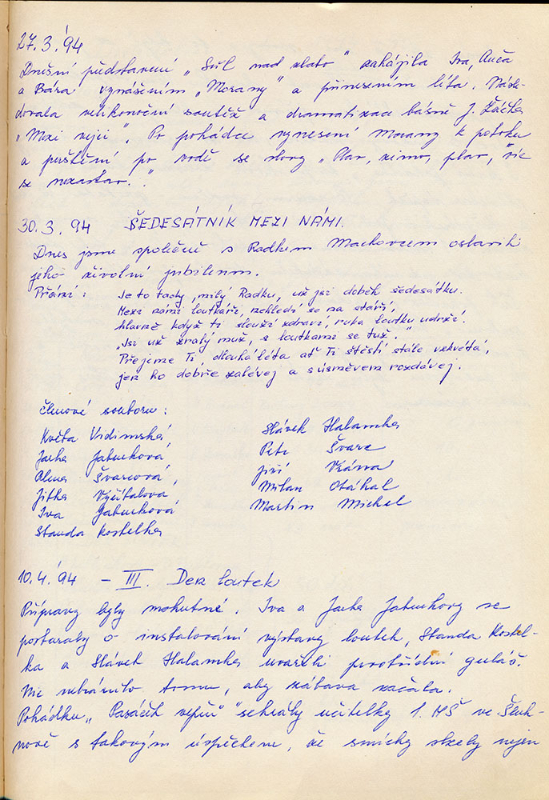 27.3.'94
Dnešní představení „Sůl nad zlato" zahájila Iva, Anča
a Bára vynášením „Morany" a přinesením léta. Násle-
dovala velikonoční soutěž a dramatizace básně J. Žáčka
„Mezi vejci". Po pohádce vynesení Morany k potoku
a puštění po vodě se slovy „Plav, zimo, plav, nic
se nezastav."
30.3.94 ŠEDESÁTNÍK MEZI NÁMI.
Dnes jsme společně s Radkem Mackovcem oslavili
jeho životní jubileum.
Přání: Je to tady, milý Radku, už jsi doběh šedesátku.
Mezi námi loutkáři, nehledí se na stáří,
hlavně když ti slouží zdraví, ruka loutku udrží.
„Jsi už zralý muž, s loutkami se tuž."
Přejeme Ti, dlouhá léta ať Ti štěstí stále vzkvétá,
jen ho dobře zalévej a s úsměvem rozdávej.
Členové souboru:
Květa Vidimská, Slávek Halamka
Jarka Jabůrková Petr Švarc
Alena Švarcová, Jiří Vávra
Jitka Vyčítalová Milan Otáhal
Iva Jabůrková Martin Michel
Standa Kostelka
10.4.'94 – III. Den loutek
Přípravy byly mohutné. Iva a Jarka Jabůrkovy se
postaraly o instalování výstavy loutek, Standa Kostel-
ka a Slávek Halamka uvařili prvotřídní guláš.
Nic nebránilo tomu, aby zábava začala.
Pohádku „Pasáček vepřů" sehrály učitelky 1. MŠ ve Šluk-
nově s takovým úspěchem, že smíchy slzely nejen